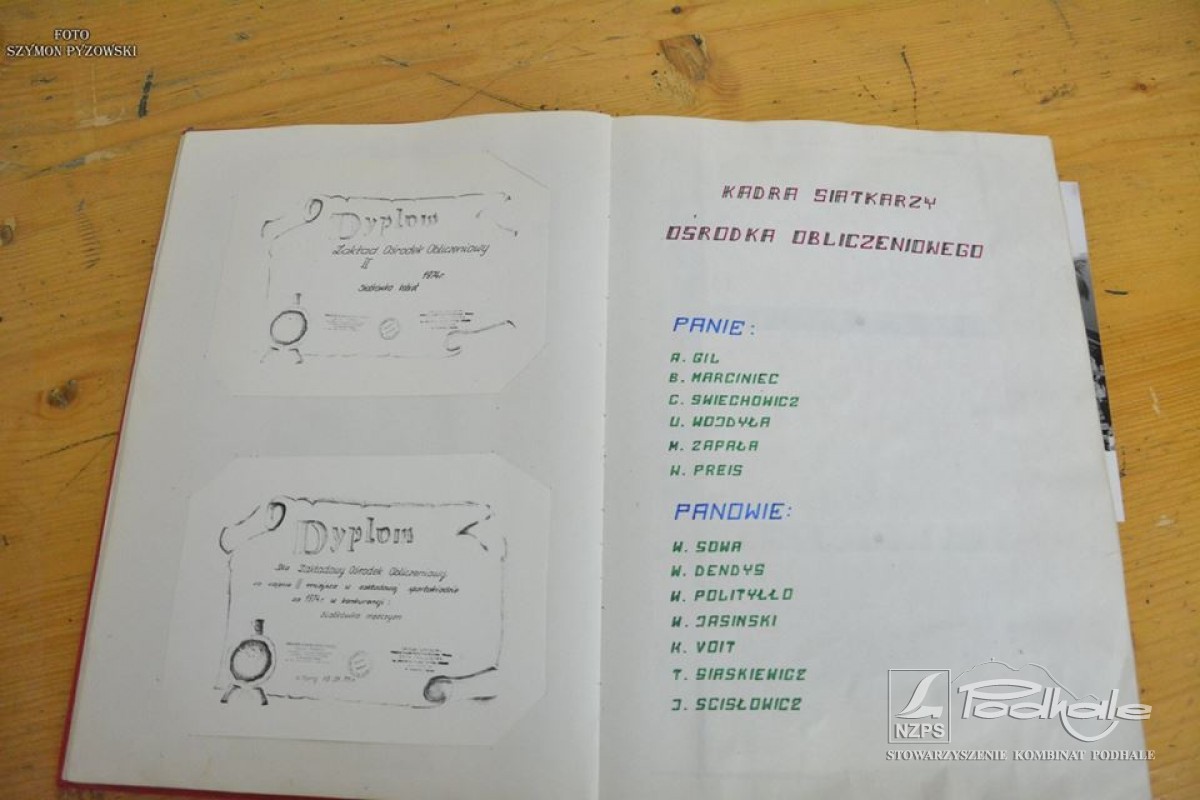 FOTO
SZYMON PYZOWSKI
Dyplom
Zakład Ośrodek Obliczeniowy
II
1974r.
Siatkówka kobiet
Dyplom
Dla Zakładowy Ośrodek Obliczeniowy
za zajęcie II miejsca w zakładowej spartakiadzie
za 1974r. w konkurencji:
Siatkówka mężczyzn
KADRA SIATKARZY
OŚRODKA OBLICZENIOWEGO
PANIE:
A. GIL
B. MARCINIEC
C. SWIECHOWICZ
U. WOJDYŁA
M. ZAPAŁA
W. PREIS
PANOWIE:
W. SOWA
W. DENDYS
W. POLITYŁŁO
W. JASINSKI
K. VOIT
T. SIASKIEWICZ
J. SCISŁOWICZ
NZPS
Podhale
STOWARZYSZENIE KOMBINAT PODHALE